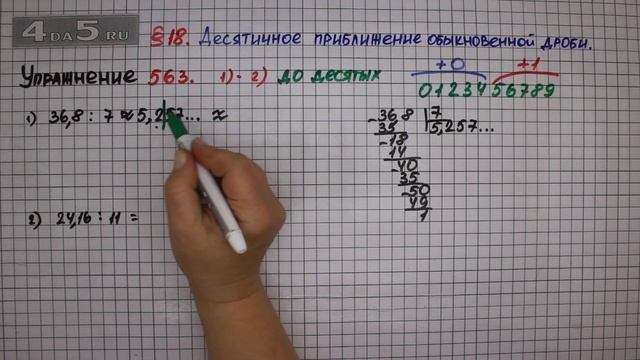 4DA5.RU
§18. Десятичное приближение обыкновенной дроби.
Упражнение 563. 1)-2) до десятых
+0 +1
0 1 2 3 4 5 6 7 8 9
1) 36,8 : 7 ≈ 5,257... ≈
2) 24,16 : 11 =
-36,8 | 7
35 5,257...
-18
14
-40
35
-50
49
1